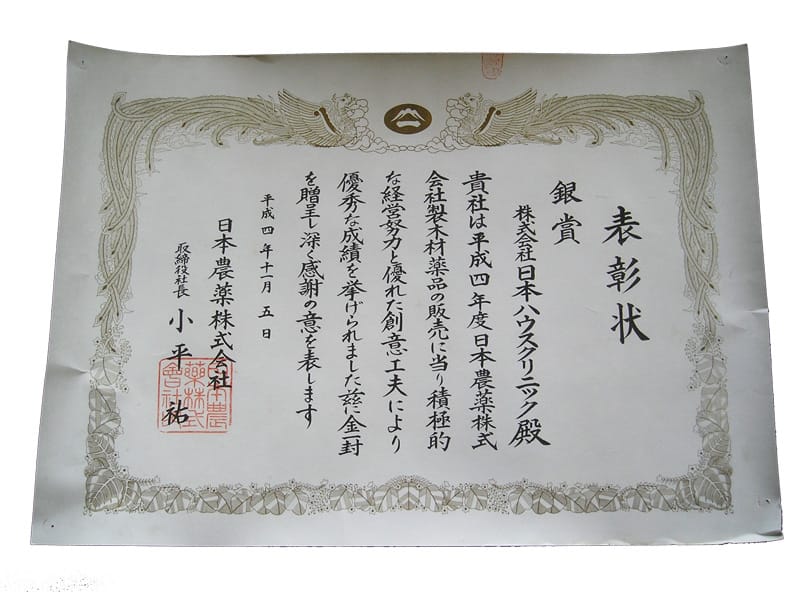 表彰状
銀賞
株式会社日本ハウスクリニック殿
貴社は平成四年度日本農薬株式
会社製木材薬品の販売に当り積極的
な経営努力と優れた創意工夫により
優秀な成績を挙げられました茲に金一封
を贈呈し深く感謝の意を表します
平成四年十一月五日
日本農薬株式会社
取締役社長 小平祐
日本農
薬株式
會社印